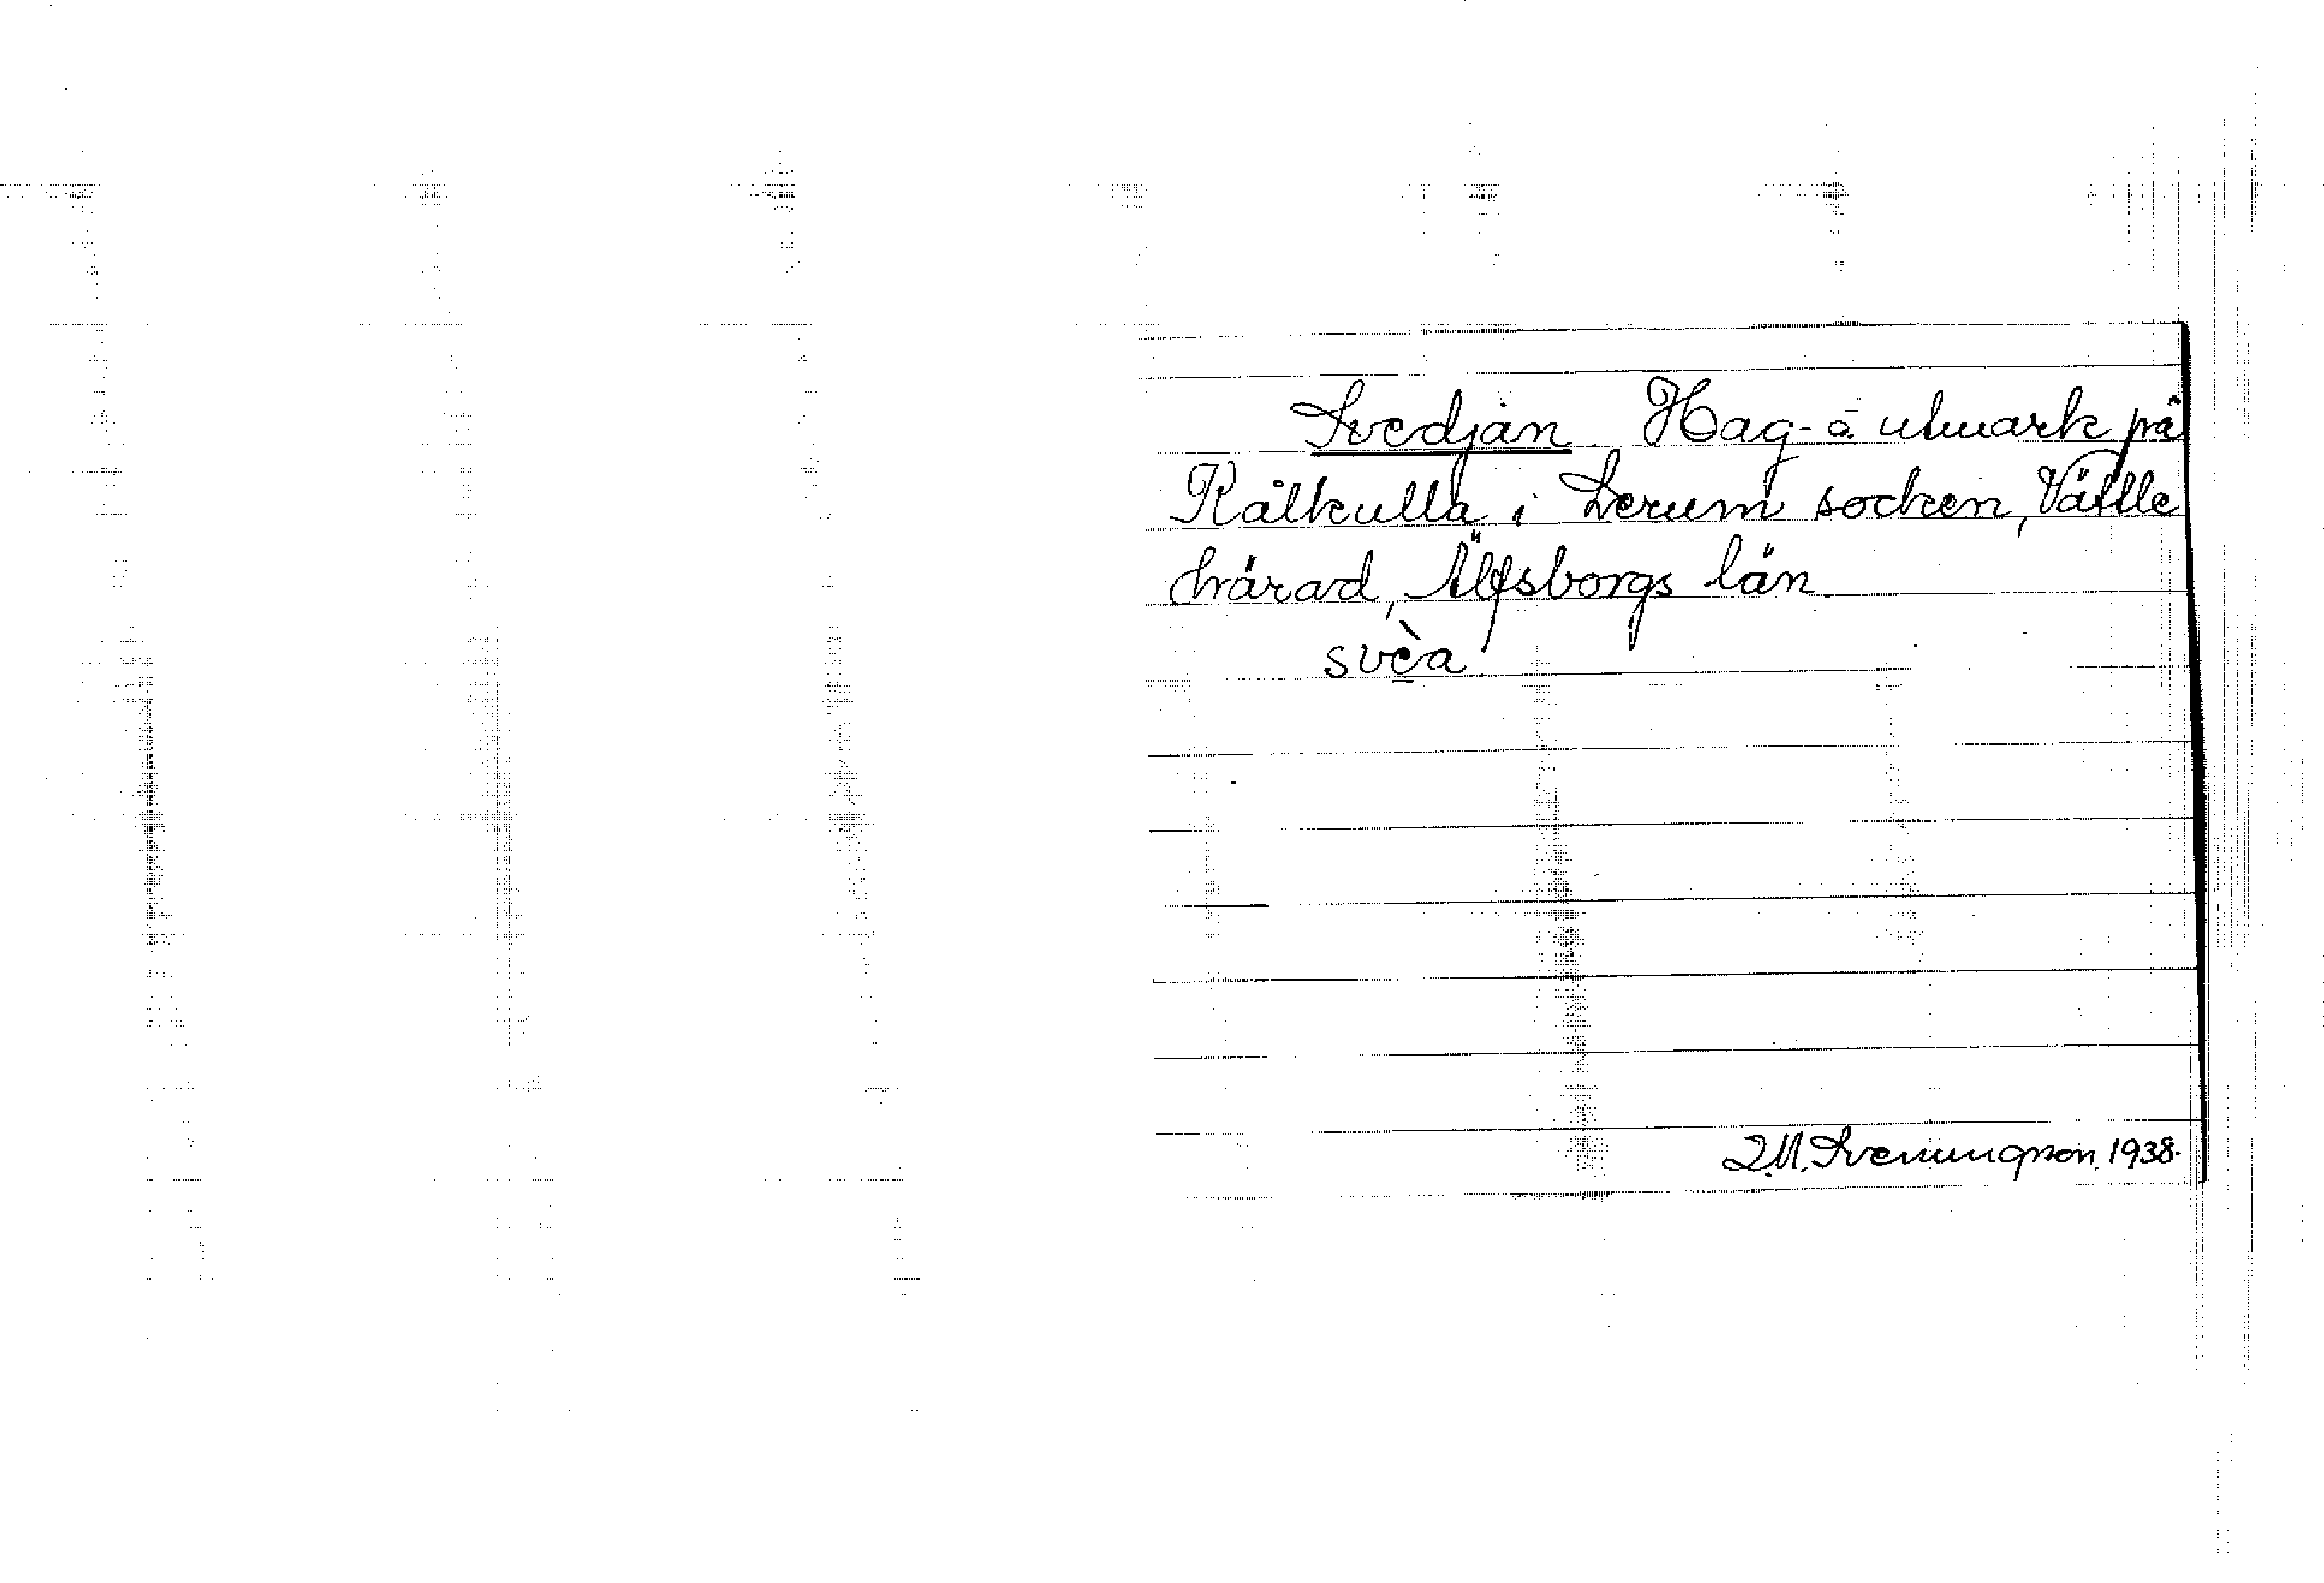 Svedjan. Hag- å utmark på
Rålkulla i Lerum socken, Vättle
härad, Älfsborgs län.
svèa
D.M. Svenningson. 1938.